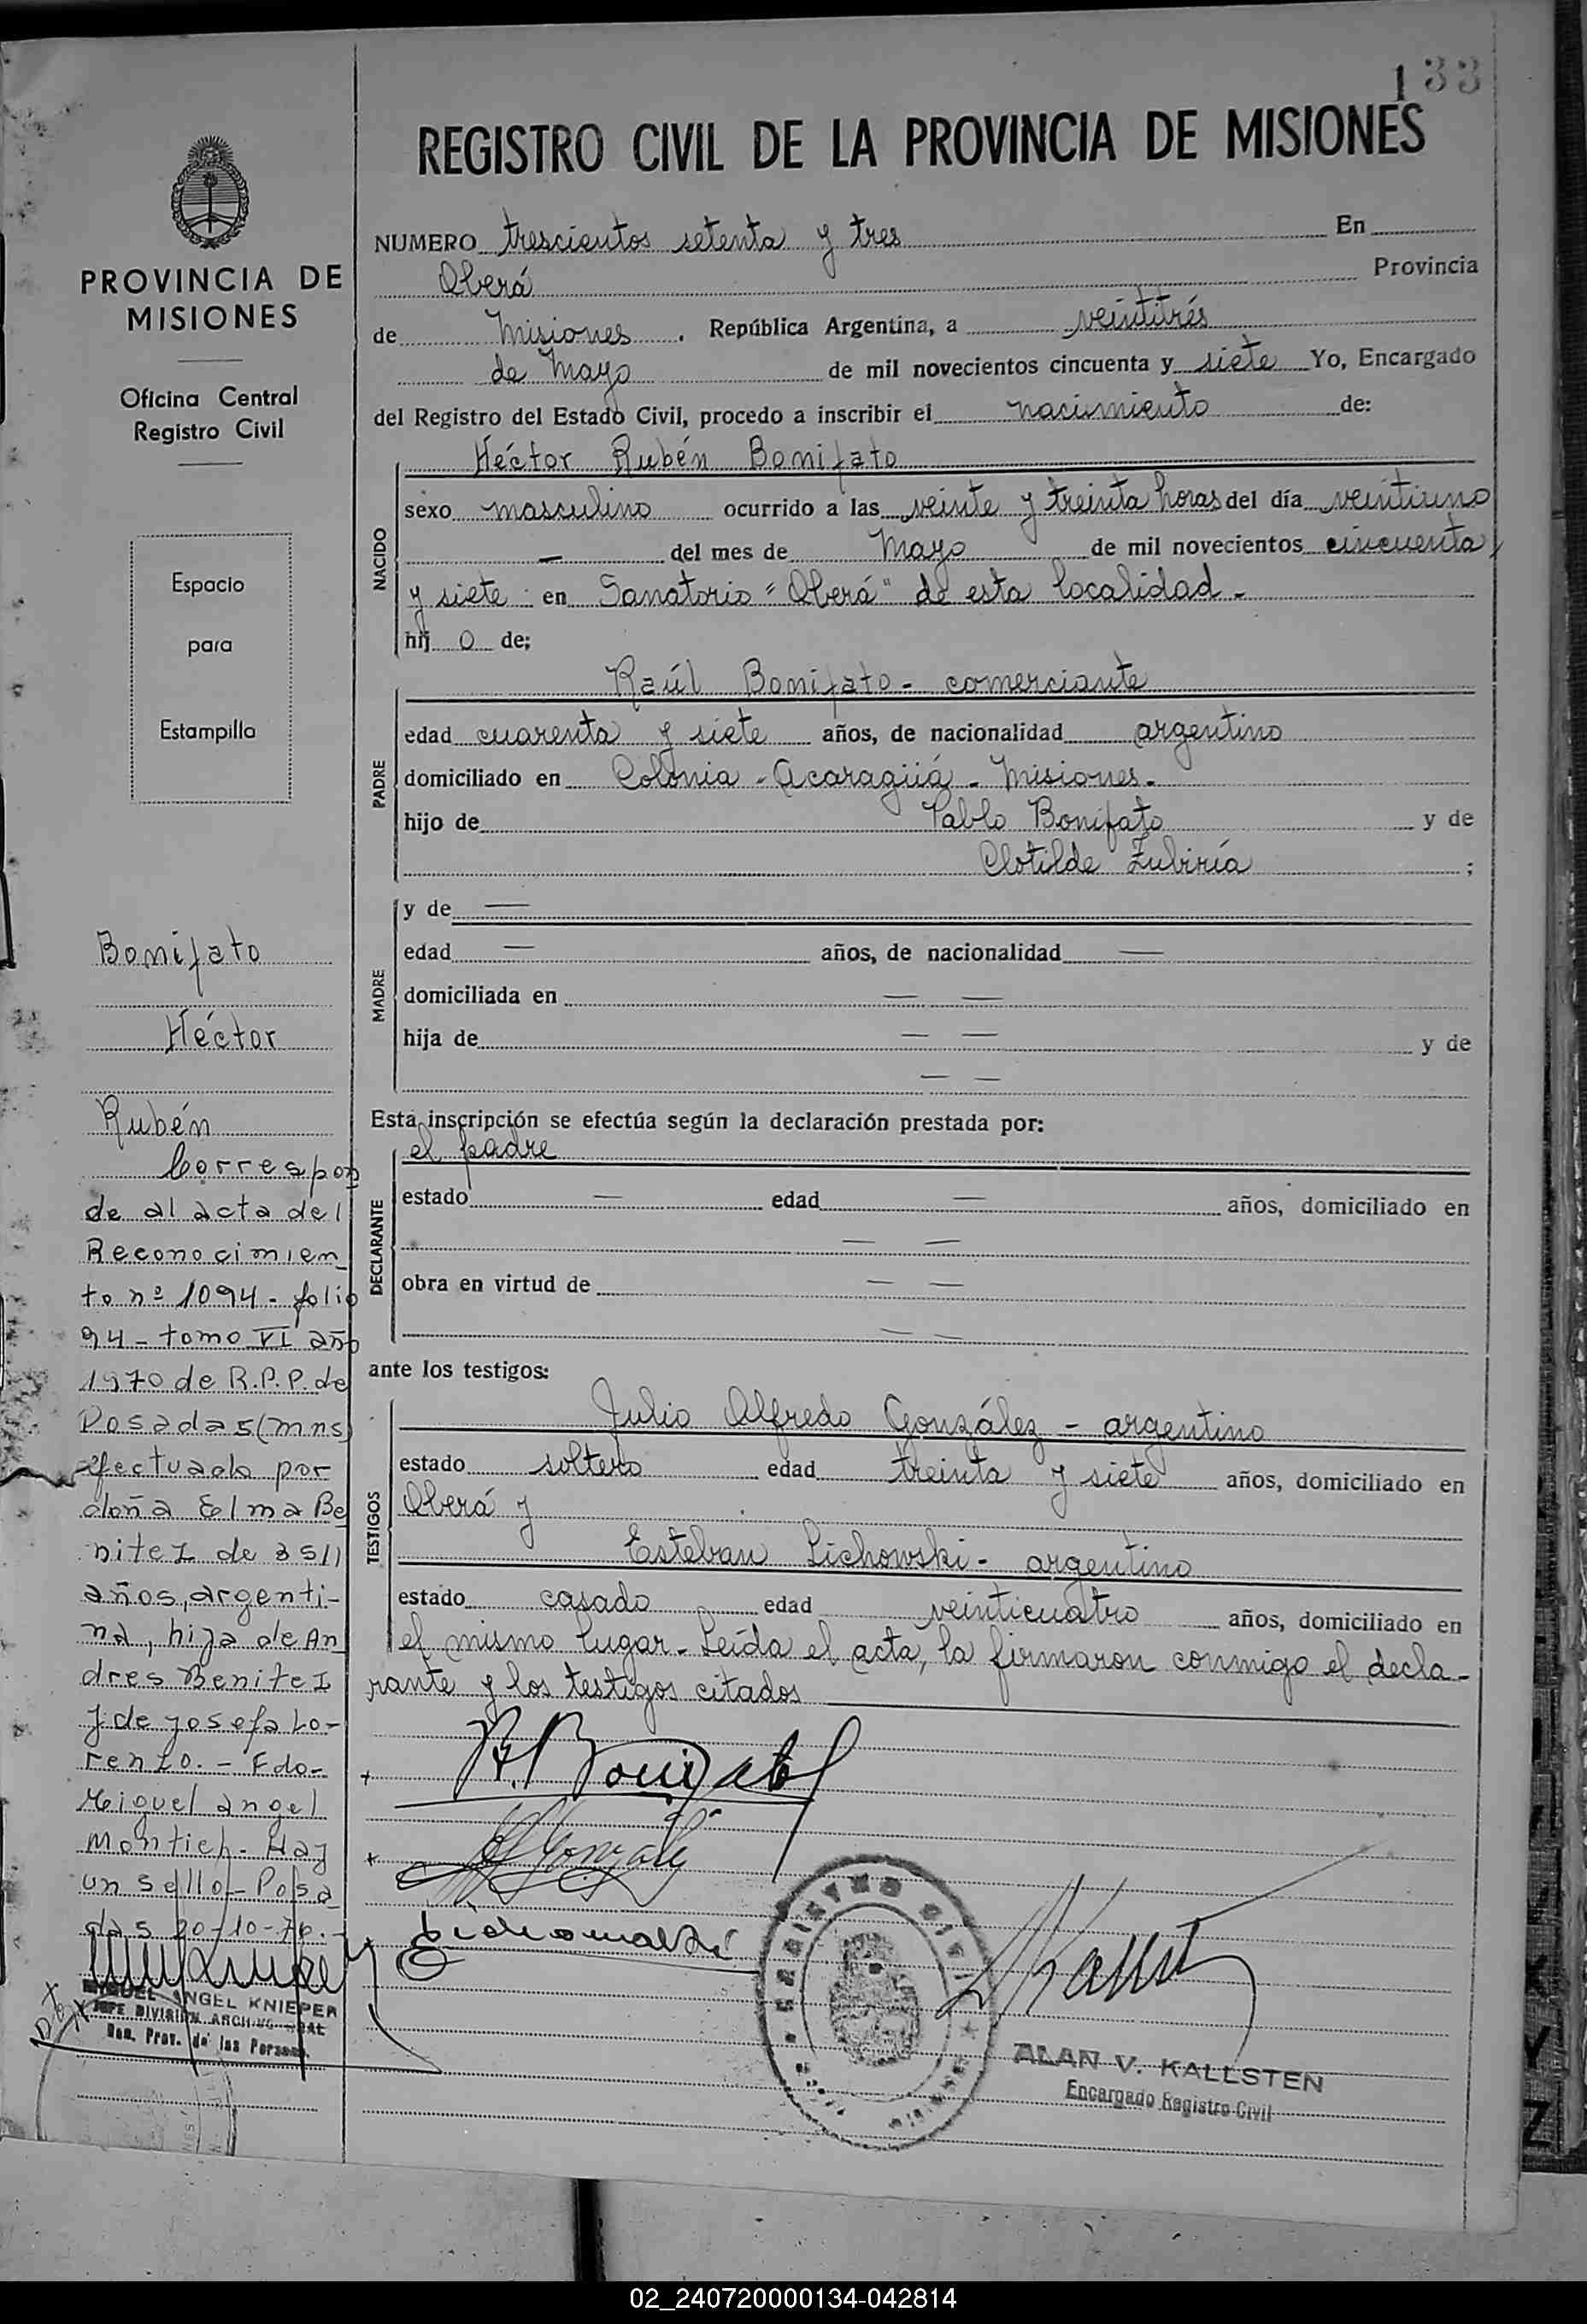 133
REGISTRO CIVIL DE LA PROVINCIA DE MISIONES
PROVINCIA DE
MISIONES
Oficina Central
Registro Civil
Espacio
para
Estampilla
NUMERO trescientos setenta y tres En
Oberá Provincia
de Misiones. República Argentina, a veintitrés
de Mayo de mil novecientos cincuenta y siete Yo, Encargado
del Registro del Estado Civil, procedo a inscribir el nacimiento de:
NACIDO
Héctor Rubén Bonifato
sexo masculino ocurrido a las veinte y treinta horas del día veintiuno
— del mes de Mayo de mil novecientos cincuenta
y siete en Sanatorio "Oberá" de esta localidad.-
hij o de;
PADRE
Raúl Bonifato - comerciante
edad cuarenta y siete años, de nacionalidad argentino
domiciliado en Colonia - Acaragüá - Misiones.-
hijo de Pablo Bonifato y de
Clotilde Zubiría ;
MADRE
y de —
edad — años, de nacionalidad —
domiciliada en — —
hija de — — y de
— —
Esta inscripción se efectúa según la declaración prestada por:
DECLARANTE
el padre
estado — edad — años, domiciliado en
— —
obra en virtud de — —
— —
ante los testigos:
TESTIGOS
Julio Alfredo González - argentino
estado soltero edad treinta y siete años, domiciliado en
Oberá y
Esteban Lichowski - argentino
estado casado edad veinticuatro años, domiciliado en
el mismo lugar. Leída el acta, la firmaron conmigo el decla-
rante y los testigos citados
R. Bonifato
ALAN V. KALLSTEN
Encargado Registro Civil
Bonifato
Héctor
Rubén
Correspon
de al acta del
Reconocimien
to nº 1094 - folio
94 - tomo VI año
1970 de R.P.P. de
Posadas (mns)
efectuado por
doña Elma Be
nitez de 35
años, argenti-
na, hija de An
dres Benitez
y de Josefa Lo-
renzo. - Fdo-
Miguel angel
Montiel - Hay
un sello - Posa
das 20-10-76.-
MIGUEL ANGEL KNIEPER
JEFE DIVISION ARCHIVO GRAL
Don. Prov. de las Personas
02_240720000134-042814